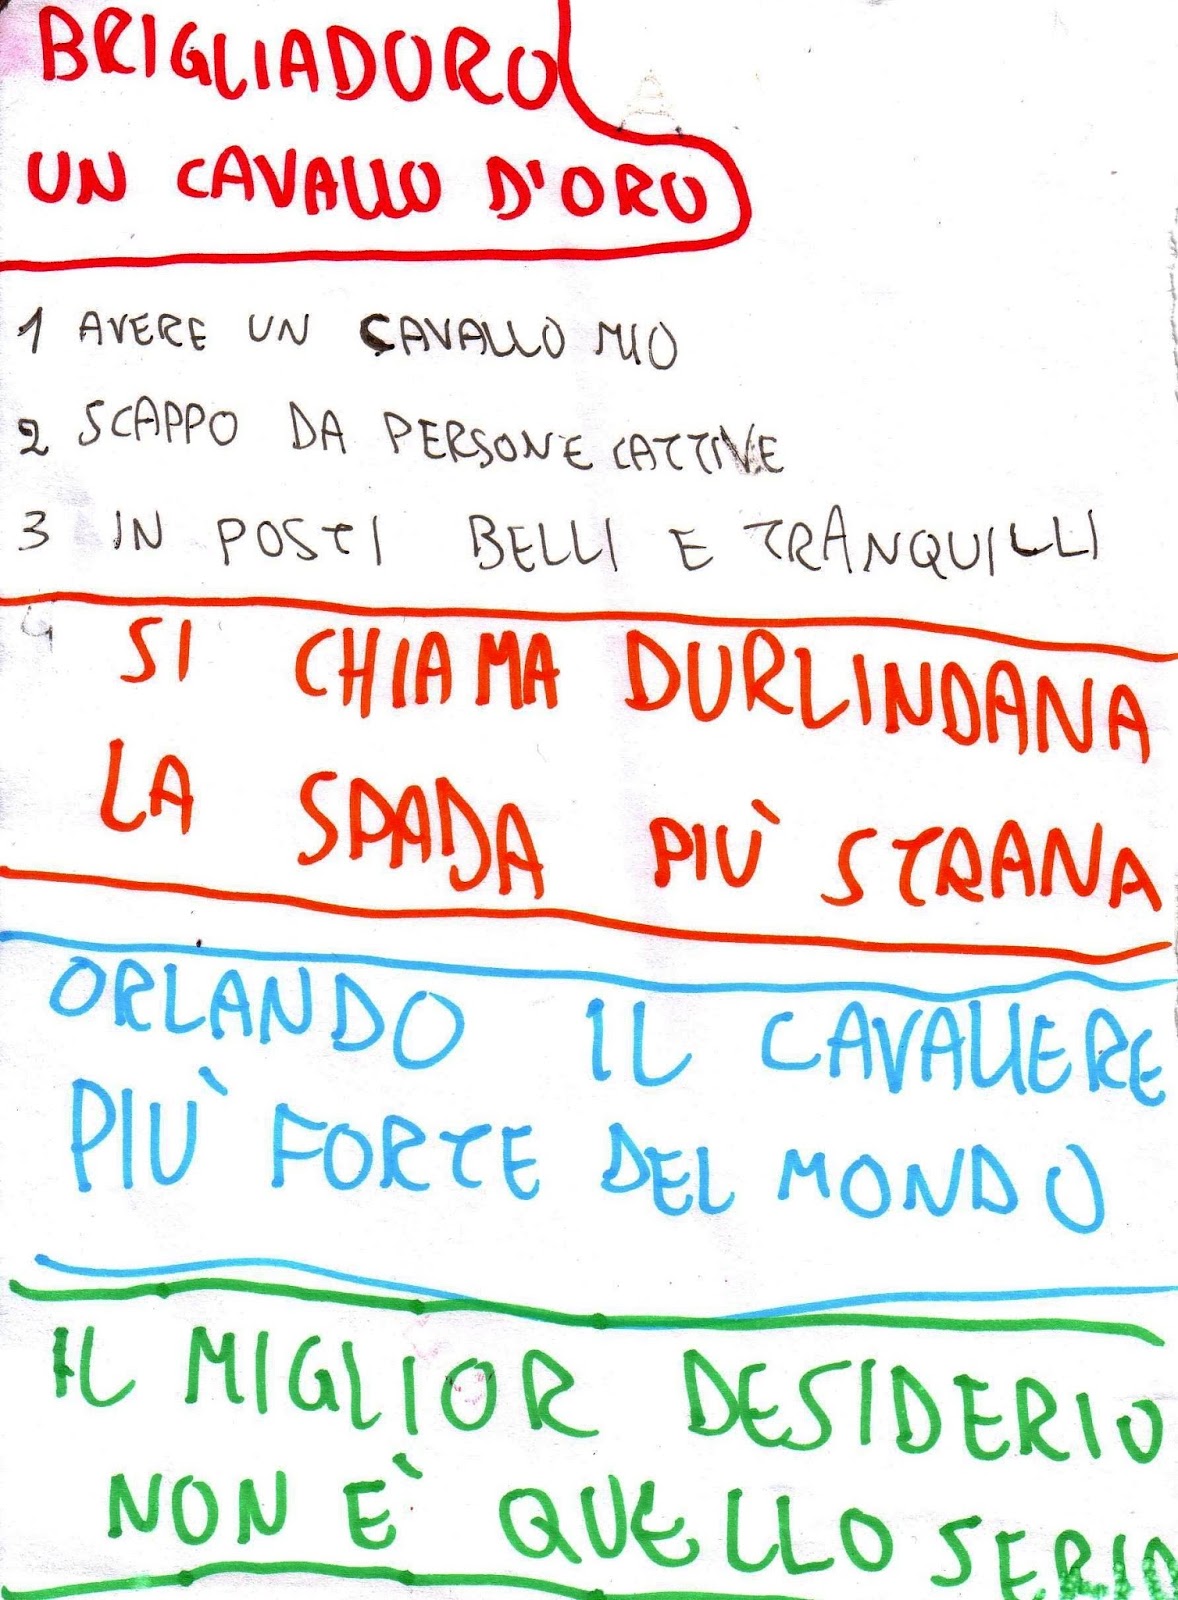 BRIGLIADORO
UN CAVALLO D'ORO
1 AVERE UN CAVALLO MIO
2 SCAPPO DA PERSONE CATTIVE
3 IN POSTI BELLI E TRANQUILLI
4
SI CHIAMA DURLINDANA
LA SPADA PIÙ STRANA
ORLANDO IL CAVALIERE
PIÙ FORTE DEL MONDO
IL MIGLIOR DESIDERIO
NON È QUELLO SERIO